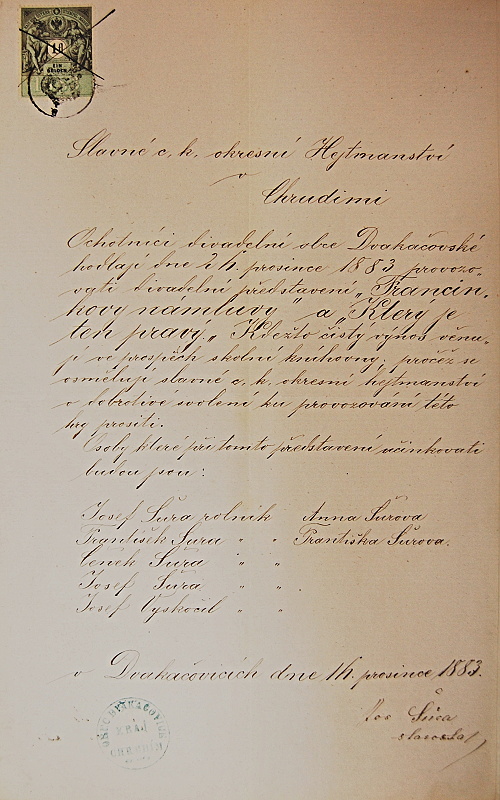 Slavné c. k. okresní Hejtmanství
v
Chrudimi
Ochotníci divadelní obce Dvakačovské
hodlají dne 26. prosince 1883 provozo„
vati divadelní představení „Francin„
kovy namluvy“ a „Který je
ten pravý.“ Kdežto čistý výnos věnu„
jí ve prospěch školní knihovny; pročež se
osmělují slavné c. k. okresní hejtmanství
o dobrotivé svolení ku provozování této
hry prositi.
Osoby které při tomto představení učinkovati
budou jsou:
Josef Šůra rolník Anna Šůrova
František Šůru „ „ Františka Šůrova.
Čeněk Šůra „ „
Josef Šůra „ „.
Josef Vyskočil „ „
v Dvakačovicích dne 16. prosince 1883.
Šůra
starosta
EIN